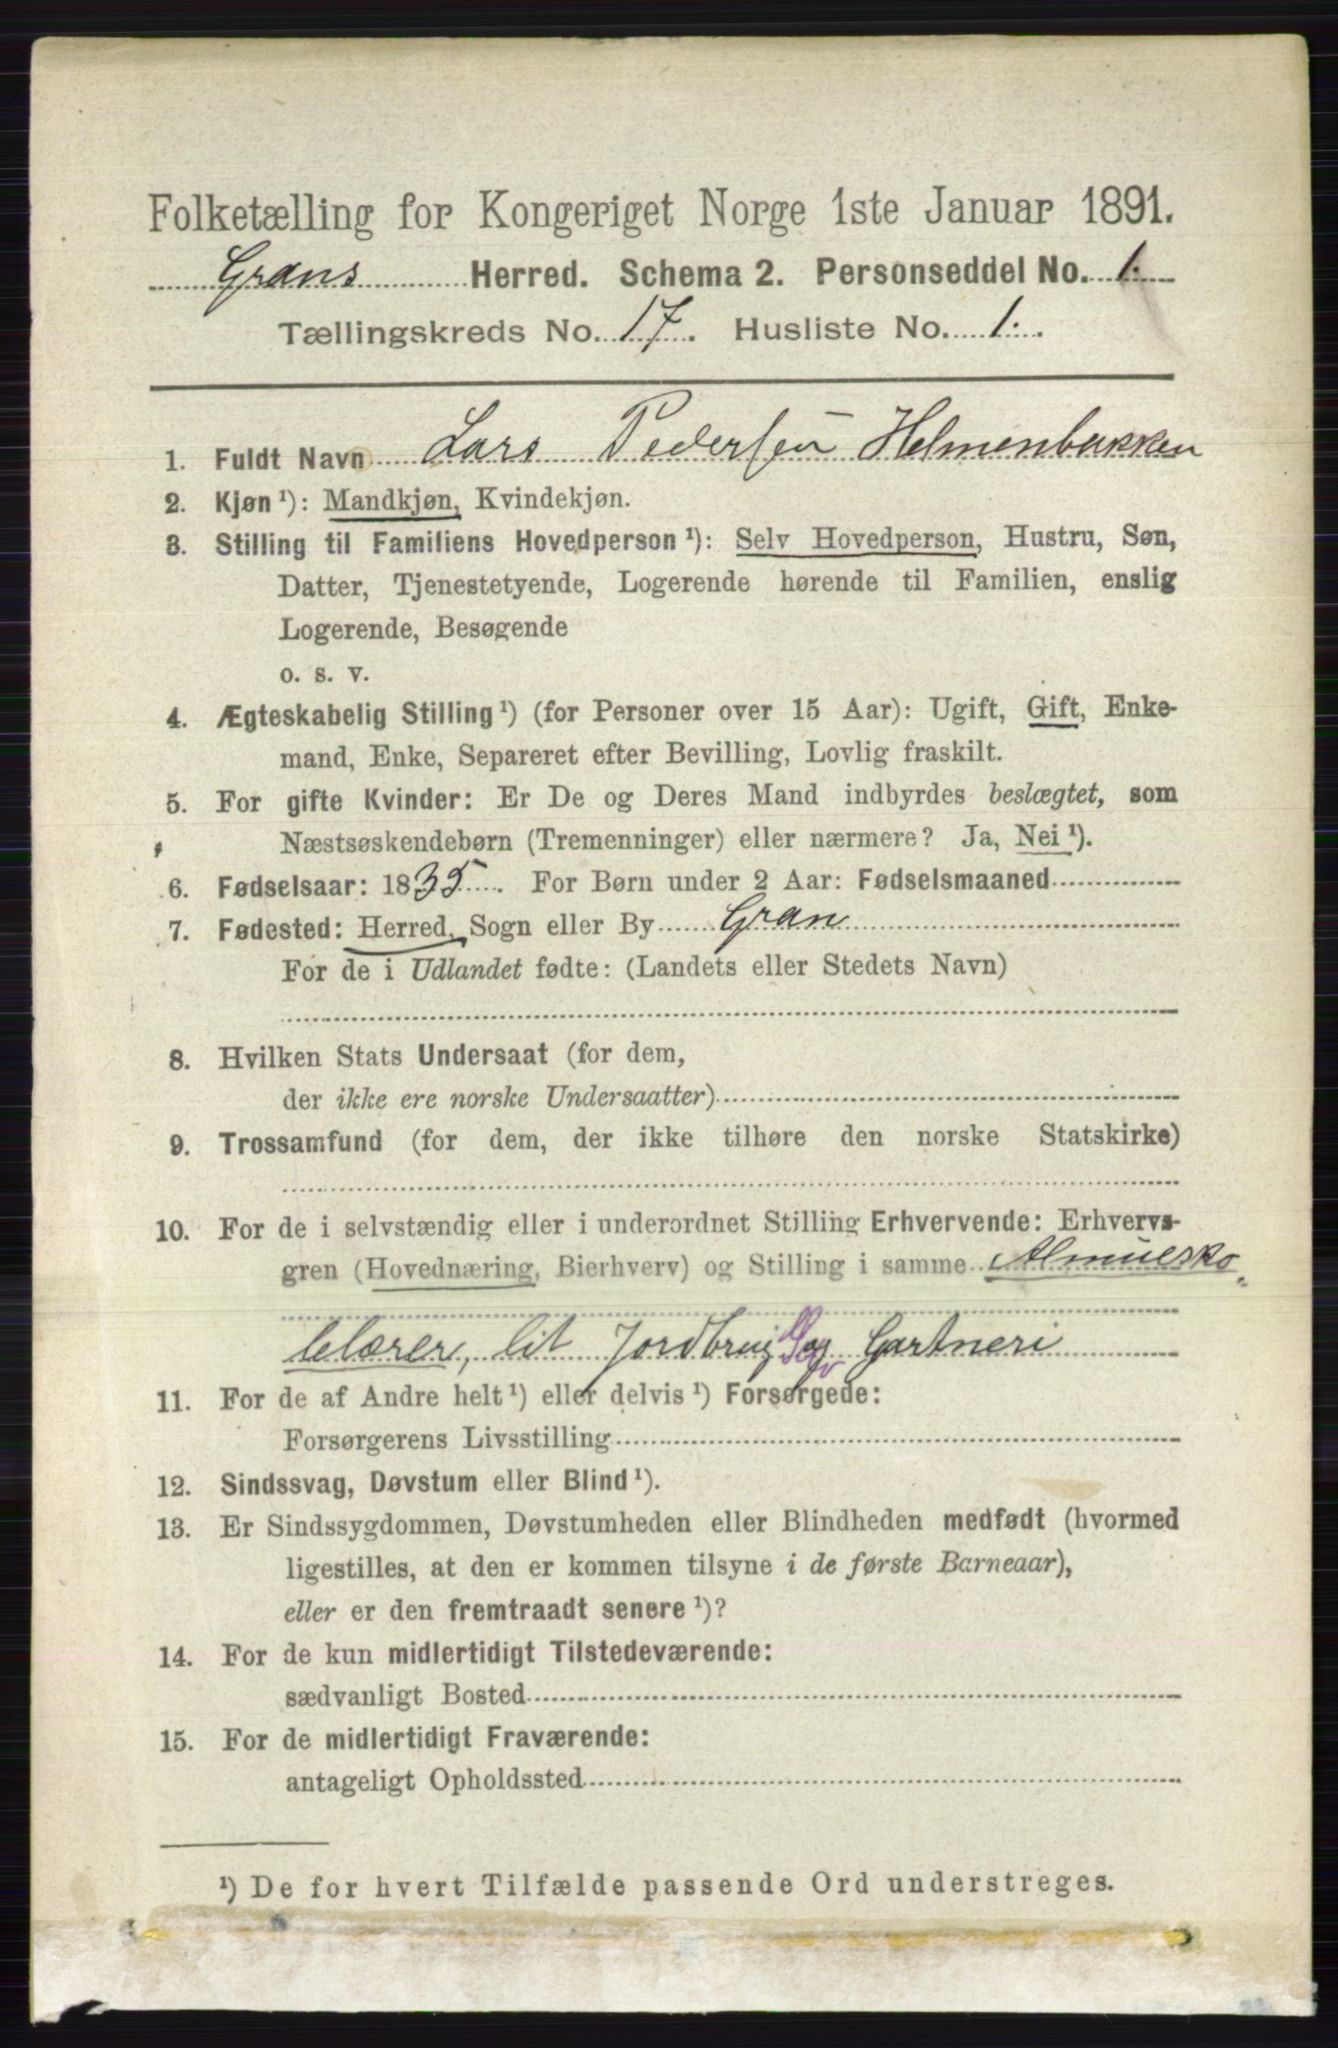 Folketælling for Kongeriget Norge 1ste Januar 1891.
Grans Herred. Schema 2. Personseddel No. 1.
Tællingskreds No. 17. Husliste No. 1.
1. Fuldt Navn Lars Pedersen Helmenbakken
2. Kjøn ¹): Mandkjøn, Kvindekjøn.
3. Stilling til Familiens Hovedperson ¹): Selv Hovedperson, Hustru, Søn,
Datter, Tjenestetyende, Logerende hørende til Familien, enslig
Logerende, Besøgende
o. s. v.
4. Ægteskabelig Stilling ¹) (for Personer over 15 Aar): Ugift, Gift, Enke-
mand, Enke, Separeret efter Bevilling, Lovlig fraskilt.
5. For gifte Kvinder: Er De og Deres Mand indbyrdes beslægtet, som
Næstsøskendebørn (Tremenninger) eller nærmere? Ja, Nei ¹).
6. Fødselsaar: 1835. For Børn under 2 Aar: Fødselsmaaned
7. Fødested: Herred, Sogn eller By Gran
For de i Udlandet fødte: (Landets eller Stedets Navn)
8. Hvilken Stats Undersaat (for dem,
der ikke ere norske Undersaatter)
9. Trossamfund (for dem, der ikke tilhøre den norske Statskirke)
10. For de i selvstændig eller i underordnet Stilling Erhvervende: Erhvervs-
gren (Hovednæring, Bierhverv) og Stilling i samme Almuesko-
lelærer, lit Jordbrug og Gartneri
11. For de af Andre helt ¹) eller delvis ¹) Forsørgede:
Forsørgerens Livsstilling
12. Sindssvag, Døvstum eller Blind ¹).
13. Er Sindssygdommen, Døvstumheden eller Blindheden medfødt (hvormed
ligestilles, at den er kommen tilsyne i de første Barneaar),
eller er den fremtraadt senere ¹)?
14. For de kun midlertidigt Tilstedeværende:
sædvanligt Bosted
15. For de midlertidigt Fraværende:
antageligt Opholdssted
¹) De for hvert Tilfælde passende Ord understreges.